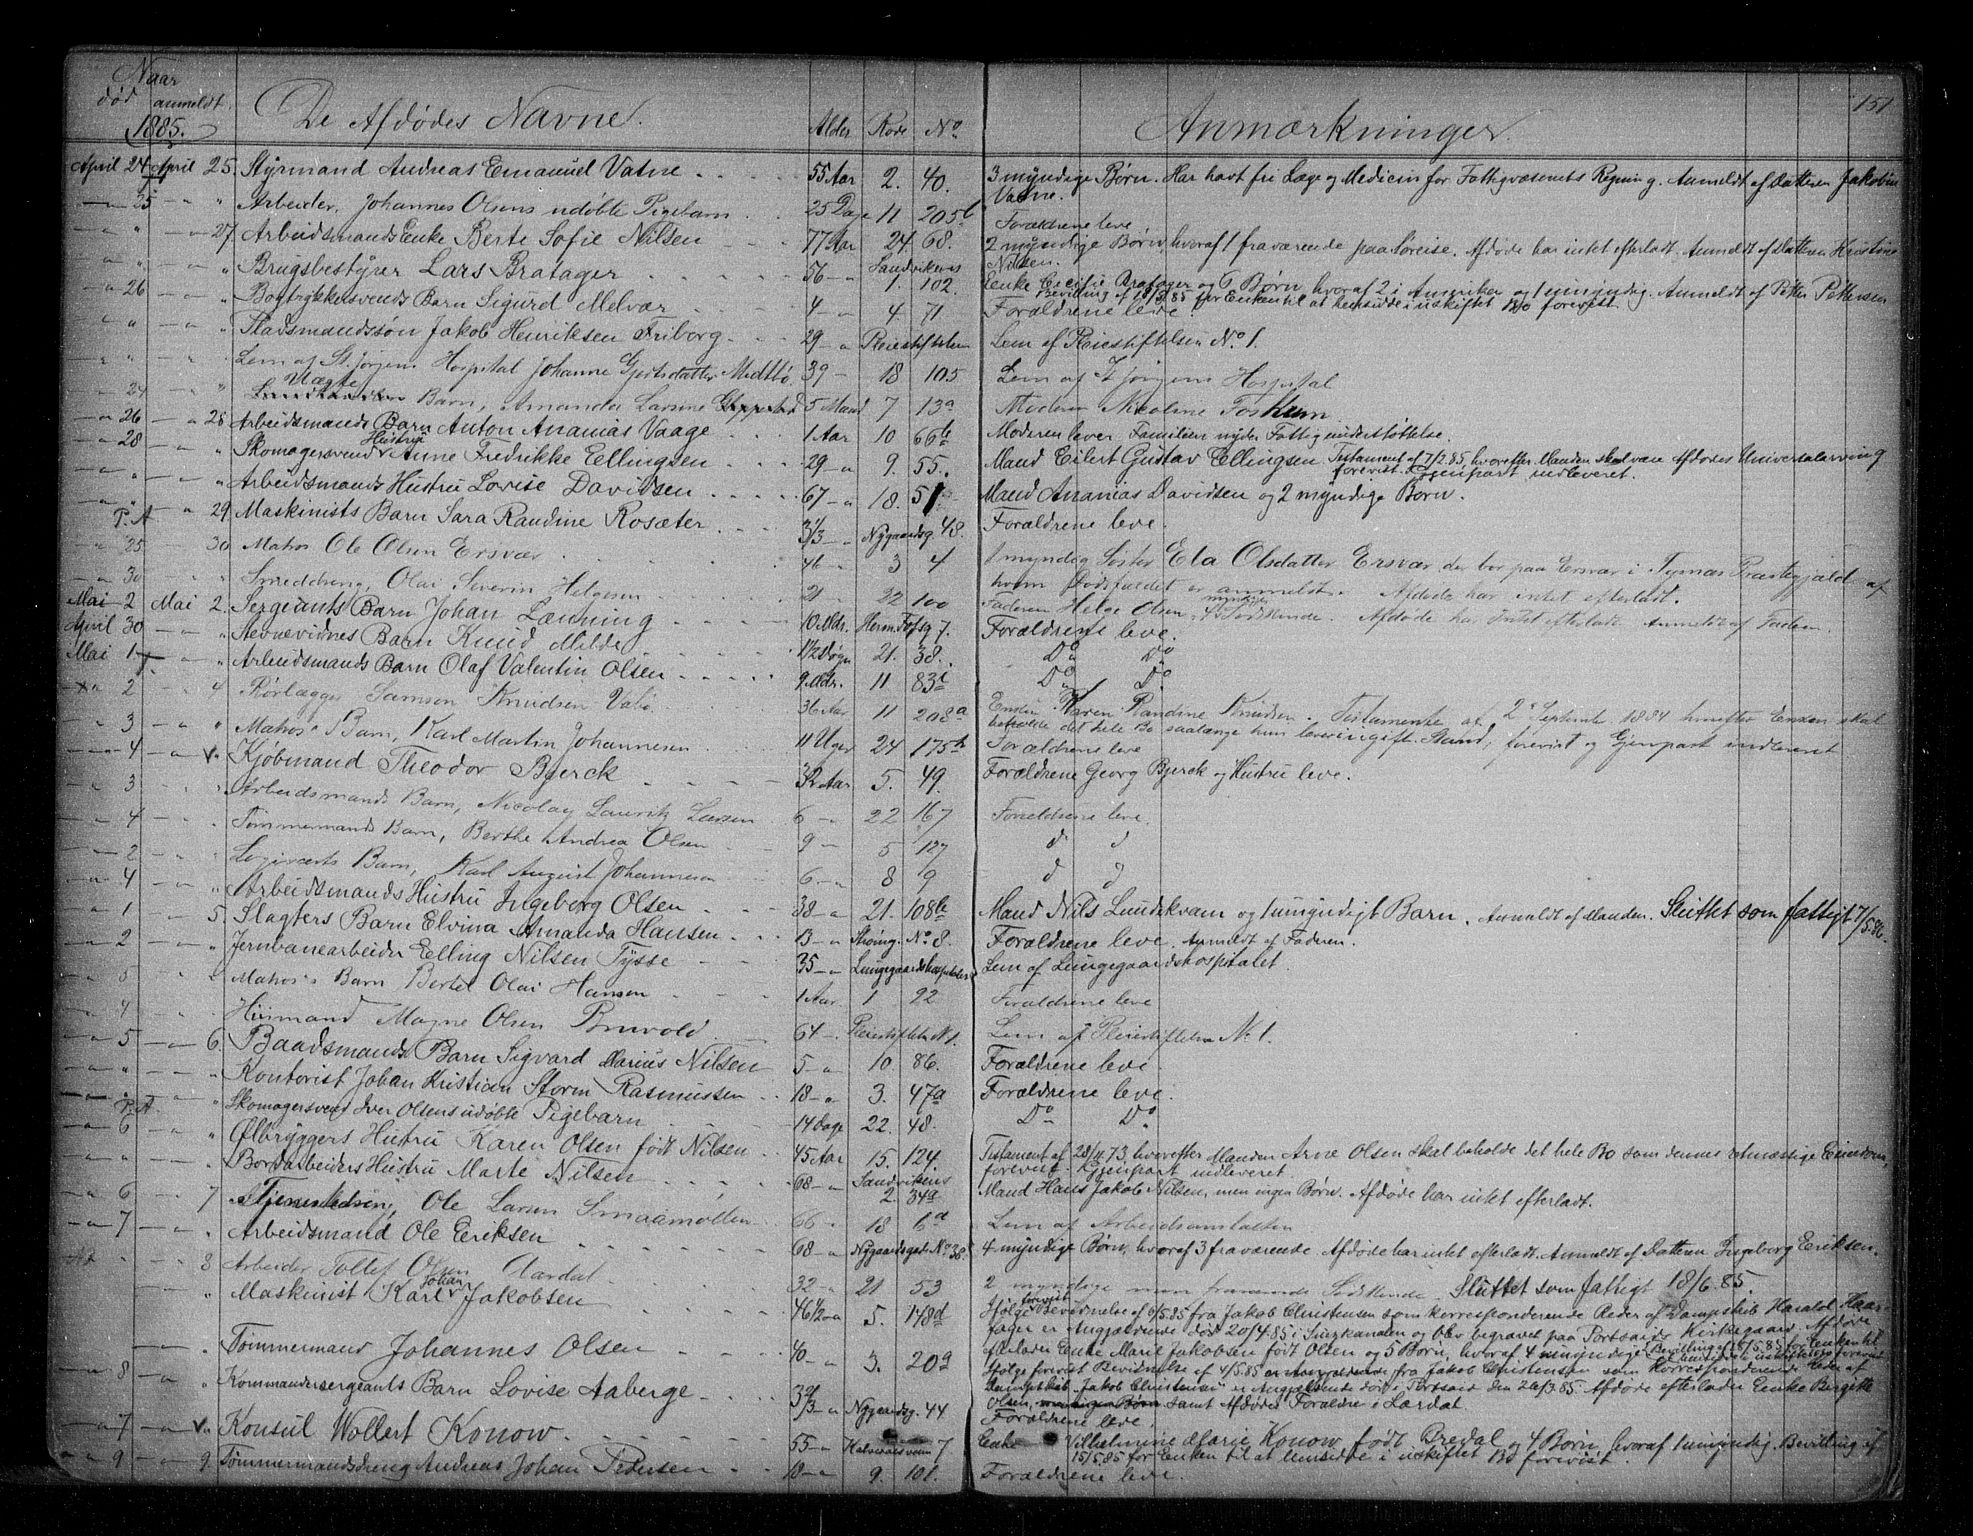 Naar
død anmeldt.
1885.
De Afdødes Navne.
Alder Rode No
Anmærkninger.
151
April 24 April 25. Styrmand Andreas Emanuel Vatne 55 Aar 2. 40. 3 myndige Børn. Har havt fri Læge og Medicin for Fattigvæsenets Regning. Anmeldt af Datteren Jakobine
Vatne.
25 " Arbeider, Johannes Olsens udøbte Pigebarn 25 Dage 11 205b Forældrene leve
" 27. Arbeidsmands Enke Berte Sofie Nilsen 77 Aar 24. 68. 2 myndige Børn, hvoraf 1 fraværende paa Søreise. Afdøde har intet efterladt. Anmeldt af Datteren Kristine
Nilsen.
" " Brugsbestyrer Lars Bratager 56 Sandvikens 1. 102. Enke Cecilie Bratager og 6 Børn, hvoraf 2 i Amerika og 1 umyndig. Anmeldt af Petter Pettersen
Bevilling af for Enken til at hensidde i uskiftet Bo forevist.
26 " Bogtrykkersvends Barn Sigurd Melvær 4 4 71 Forældrene leve.
" " Stadsmandssøn Jakob Henriksen Friborg 29 Pleiestiftelsen Lem af Pleiestiftelsen No 1.
" " Lem af St. Jørgens Hospital Johanne Gjertsdatter Midttø 39 18 105 Lem af St Jørgens Hospital
24 " Uægte Barn, Amanda Larsine 5 Maaned 7 13a Moderen Nicoline
26 28 Arbeidsmands Barn Anton Ananias Vaage 1 Aar 10 66b Moderen lever. Familien nyder Fattigunderstøttelse.
28 " Skomagersvends Hustru Anne Fredrikke Ellingsen 29 9. 55. Mand Eilert Gustav Ellingsen. Testament af 7/2.85, hvorefter Manden skal være Afdødes Universalarving
forevist. Gjenpart indleveret.
" " Arbeidsmands Hustru Lovise Davidsen 67 18. 51. Mand Ananias Davidsen og 2 myndige Børn.
P.A 29. Maskinists Barn Sara Randine Rosæter 3 1/3 Nygaardsg. 48. Forældrene leve.
25 30 Matros Ole Olsen Ersvær 46 3 4 1 myndig Søster Ela Olsdatter Ersvær der bor paa Ersvær i Præstegjæld af
hvem Dødsfaldet er anmeldt. Afdøde har intet efterladt.
30 " Smeddreng, Olai Severin Helgesen 21 22 100 Faderen Helge Olsen, 4 myndige Sødskende. Afdøde har Intet efterladt. Anmeldt af Faderen.
Mai 2 Mai 2. Sergeants Barn Johan Lænning 10 Mdr. Herm. Fossg 7. Forældrene leve.
April 30 " Stevnevidnes Barn Knud Milde 1 1/2 Døgn 21. 38. Do Do
Mai 1 " Arbeidsmands Barn Olaf Valentin Olsen 9 Mdr. 11 83 Do Do
2 4 Rørlægger Samson Knudsen 36 Aar 11 208a Enken Karen Randine Knudsen. Testamente af 2 September 1884 hvorefter Enken skal
beholde det hele Bo saalænge hun lever i ugift Stand, forevist og Gjenpart indleveret
3 " Matros' Barn, Karl Martin Johannesen 11 Uger 24 175b Forældrene leve
4 " Kjøbmand Theodor Bjerck 32 Aar 5. 49. Forældrene Georg Bjerck og Hustru leve.
3 " Arbeidsmands Barn, Nicolay Lauritz Larsen 6 22 167 Forældrene leve.
4 " Tømmermands Barn, Berthe Andrea Olsen 9 5 127 d d
2 " Logiværts Barn, Karl August Johannesen 6 8 9 d d
4 " Arbeidsmands Hustru Ingeborg Olsen 38 21. 108b Mand Nils Lundekvam og 1 umyndigt Barn. Anmeldt af Manden. Sluttet som fattigt 7/5.86.
1 5. Slagters Barn Elvina Amanda Hansen 13 Strømg. No 8. Forældrene leve. Anmeldt af Faderen.
2 " Jernbanearbeider Elling Nilsen Tysse 35 Lungegaardshospitalet Lem af Lungegaardshospitalet.
5 " Matros's Barn Bertel Olai Hansen 1 Aar 1 22 Forældrene leve
4 " Huusmand Magne Olsen Bruvold 64 Pleiestiftelsen No 1. Lem af Pleiestiftelsen No 1.
5 6. Baadsmands Barn Sigvard Marius Nilsen 5 10 86. Forældrene leve.
" " Kontorist Johan Kristian Storm Rasmussen 18 3. 47a Forældrene leve.
P.A. " Skomagersvend Iver Olsens udøbte Pigebarn 14 Dage 22. 48. Do Do
6 " Ølbryggers Hustru Karen Olsen født Nilsen 45 Aar 15. 124. Testament af 28/11.73, hvorefter Manden Arne Olsen skal beholde det hele Bo som dennes retmæssige Eiendom,
forevist. Gjenpart indleveret.
" " Bordarbeiders Hustru Marte Nilsen 68 Sandvikens 2. 34a Mand Hans Jakob Nilsen, men ingen Børn. Afdøde har intet efterladt.
6 7 Ole Larsen Smaamollen 66 18 6d Lem af Arbeidsanstalten
7 " Arbeidsmand Ole Eriksen 68 Nygaardsgade No 38. 4 myndige Børn, hvoraf 3 fraværende. Afdøde har intet efterladt. Anmeldt af Datteren Ingeborg Eriksen.
8 Arbeider Tollef Olsen Aardal 32 21 53 2 myndige Sødskende. Sluttet som fattigt 18/6.85.
" Maskinist Karl Johan Jakobsen 46 1/2 5. 148d Ifølge forevist Bevidnelse af 6/5.85 fra Jakob Christensen som korresponderende Reder af Dampskib Harald Haar-
fager er Angjældende død 20/4.85 i Suezkanalen og blev begravet paa Portsaids Kirkegaard. Afdøde
efterlader Enke Marie Jakobsen født Olsen og 5 Børn, hvoraf 4 umyndige. Bevilling af for Enken til
" Tømmermand Johannes Olsen 40 3. 20a Ifølge forevist Bevidnelse af 4/5.85 fra Jakob Christensen som korresponderende Reder af
Dampskib "Jakob Christensen" er Angjældende død i Portsaid den 26/3.85. Afdøde efterlader Enke Birgitte
Olsen, samt Afdødes Forældre i Lærdal.
8 " Kommandersergeants Barn Lovise Aaberge 3 2/3 Nygaardsg. 44 Forældrene leve.
7 " Konsul Wollert Konow 55 Kalvedalsveien 7 Enke Vilhelmine Marie Konow født Bredal og 4 Børn, hvoraf 1 umyndig. Bevilling af
15/5.85 for Enken til at hensidde i uskiftet Bo forevist.
9 9. Tømmermandsdreng Andreas Johan Pedersen 10 9. 101. Forældrene leve.